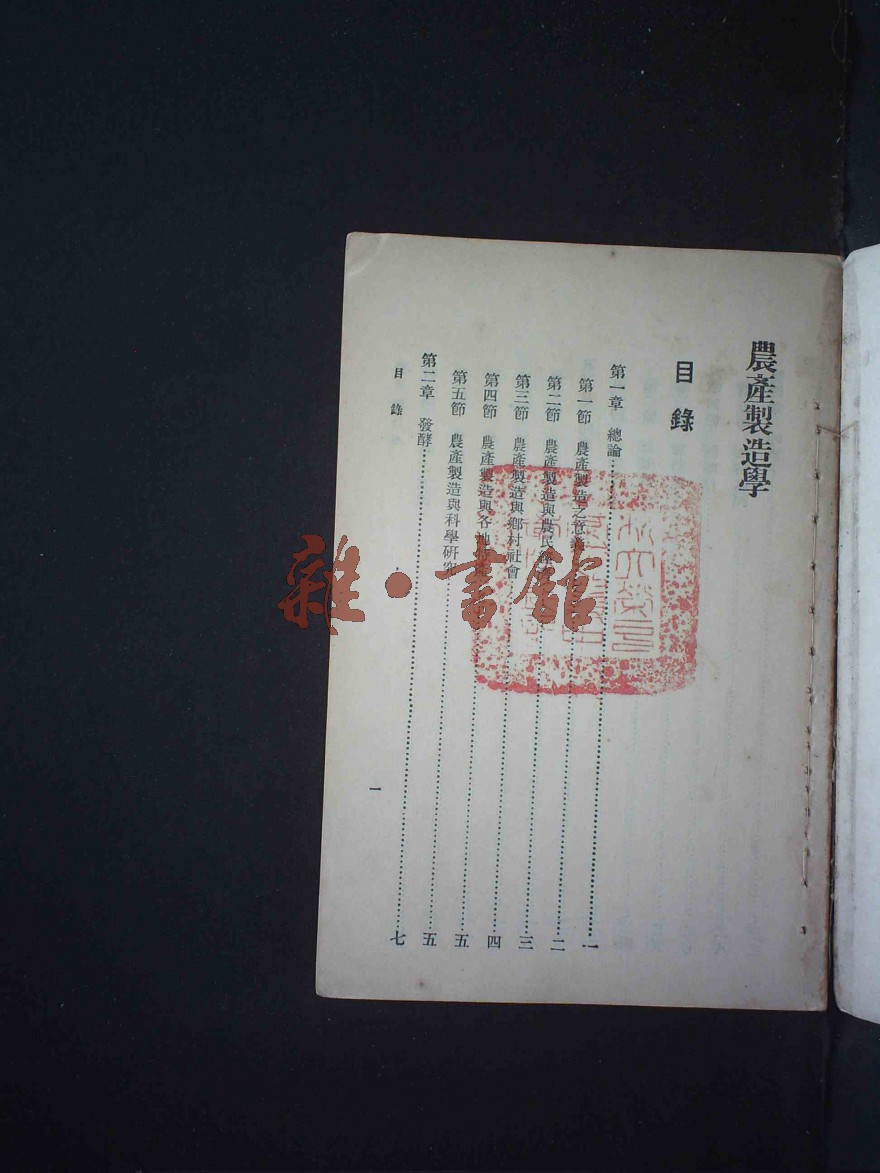 農產製造學
目錄
第一章 總論……一
第一節 農產製造之意義……二
第二節 農產製造與農民……三
第三節 農產製造與鄉村社會……四
第四節 農產製造與各地……五
第五節 農產製造與科學研究……五
第二章 發酵……七
目錄
一
雜·書館